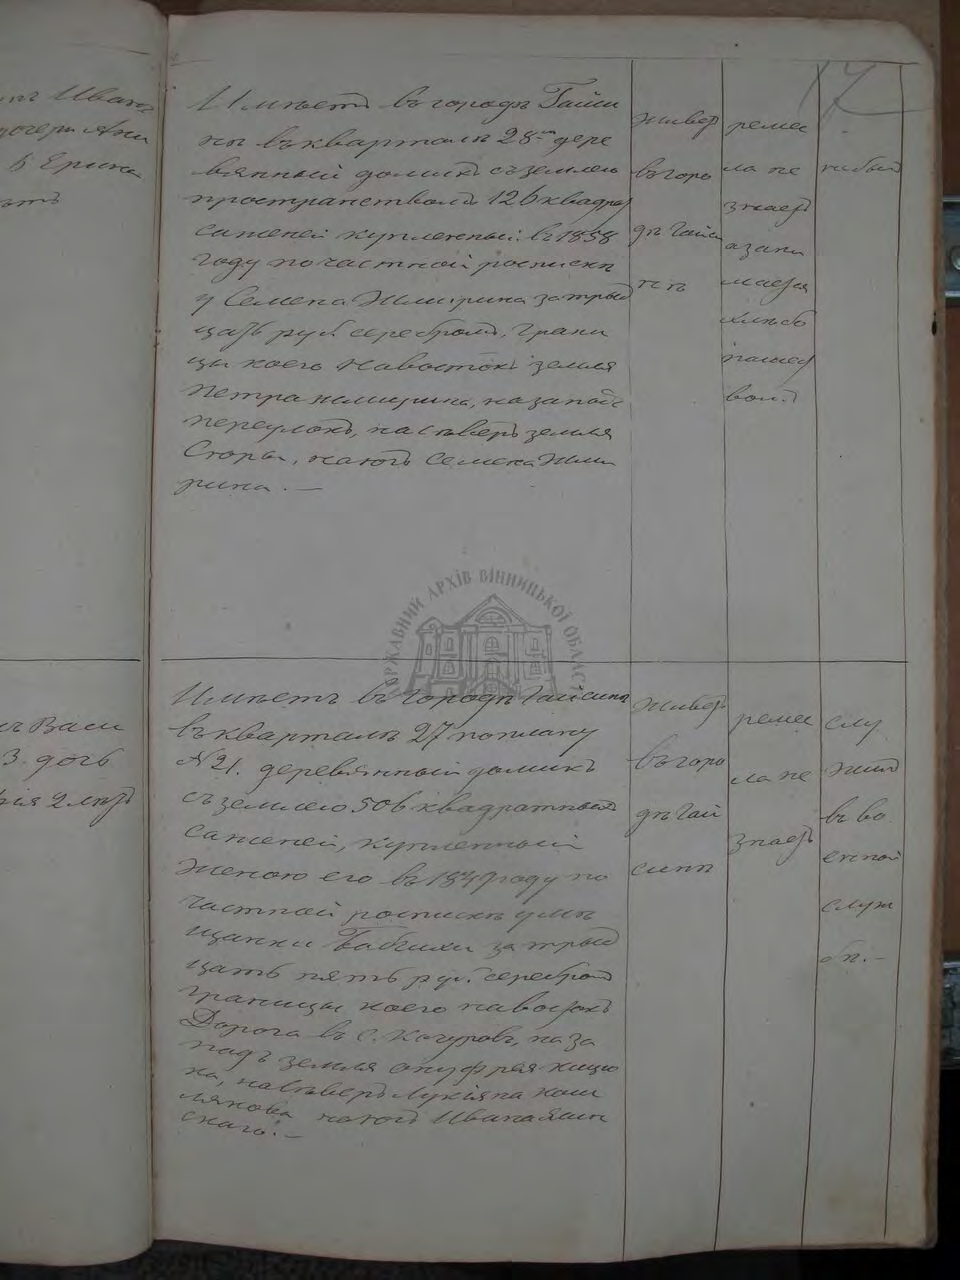 17
Имѣетъ въ городѣ Гайси
нѣ въ кварталѣ 28мъ дере
вянный домикъ съ землею
пространствомъ 126 квадрат
саженей купленный въ 1858
году по частной роспискѣ
у Семена Жмирина за трид
цать руб серебромъ, грани
цы коего на востокъ земля
Петра Жмирина, на западъ
переулокъ, на сѣверъ земля
на югъ Семена Жми
рина. —
живетъ
въ горо
дѣ Гайси
нѣ
ремес
ла не
знаетъ
а зани
мается
хлѣбо
пашест
вомъ
небылъ
ДЕРЖАВНИЙ АРХІВ ВІННИЦЬКОЇ ОБЛАСТІ
Имѣетъ въ городѣ Гайсинѣ
въ кварталѣ 27 по плану
№ 21. деревянный домикъ
съ землею 506 квадратныхъ
саженей, купленный
женою его въ 1849 году по
частной роспискѣ у мѣ
щанки за трид
цать пять руб. серебромъ
границы коего на востокъ
Дорога въ с. на за
падъ земля
на, на сѣверъ Лукіяна Кош
лякова на югъ Ивана
скаго. —
живетъ
въ горо
дѣ Гай
синѣ
ремес
ла не
знаетъ
слу
жилъ
въ во
енной
служ
бѣ. —
Иван
дочери Анн
ъ Васи
3. дочь
2 лѣтъ